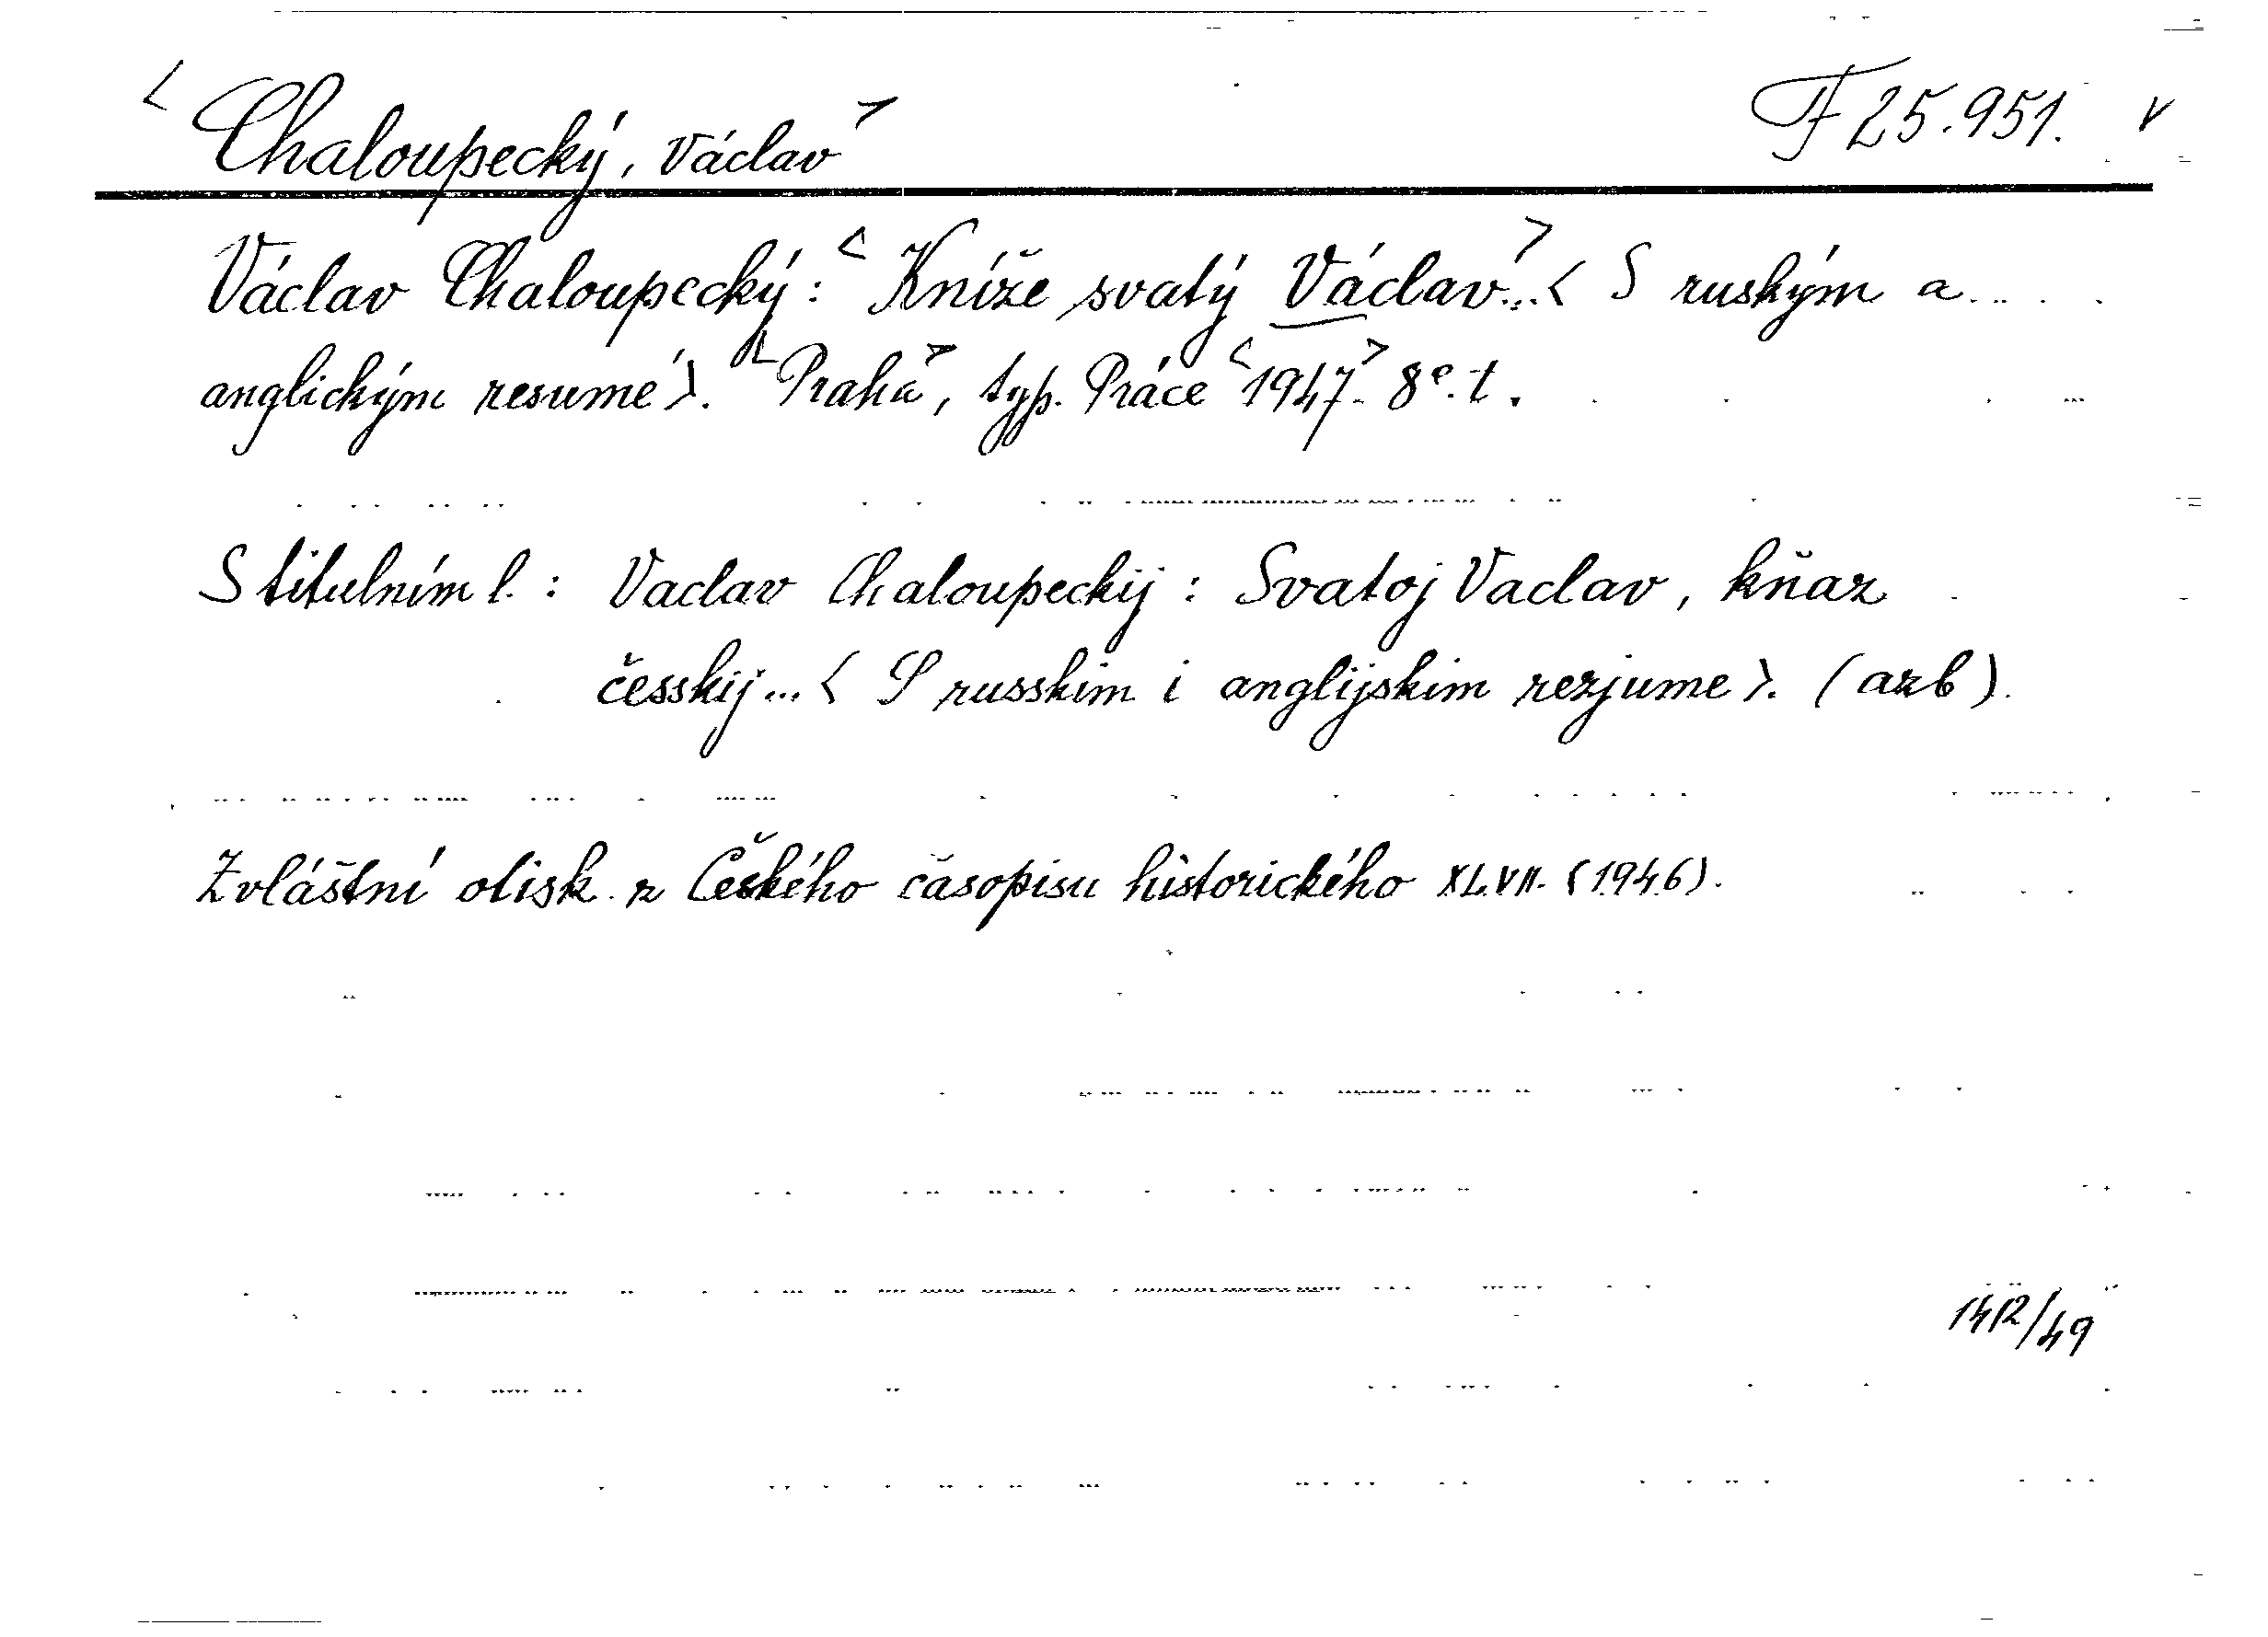 < Chaloupecký, Václav > F 25.951. v
Václav Chaloupecký: < Kníže svatý Václav > ... < S ruským a
anglickým resumé >. < Praha >, typ. Práce < 1947 >. 8°. t.
S titulním l.: Vaclav Chaloupeckij: Svatoj Vaclav, kňaz
česskij... < S russkim i anglijskim rezjume >. (azb).
Zvláštní otisk z Českého časopisu historického XLVII. (1946).
1412/49